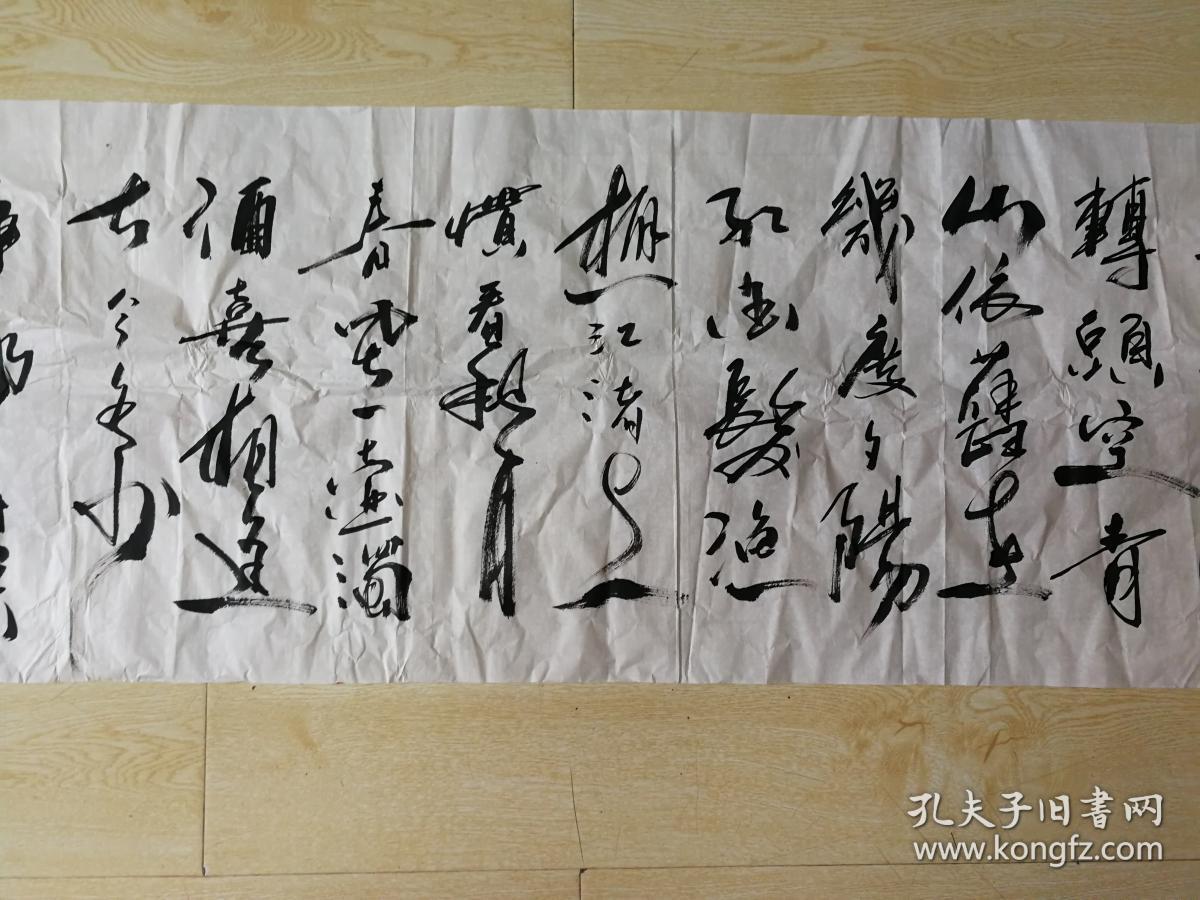 轉頭空青
山依舊在
幾度夕陽
紅白髮漁
樵江渚上
慣看秋月
春風一壺濁
酒喜相逢
古今多少
孔夫子旧书网
www.kongfz.com